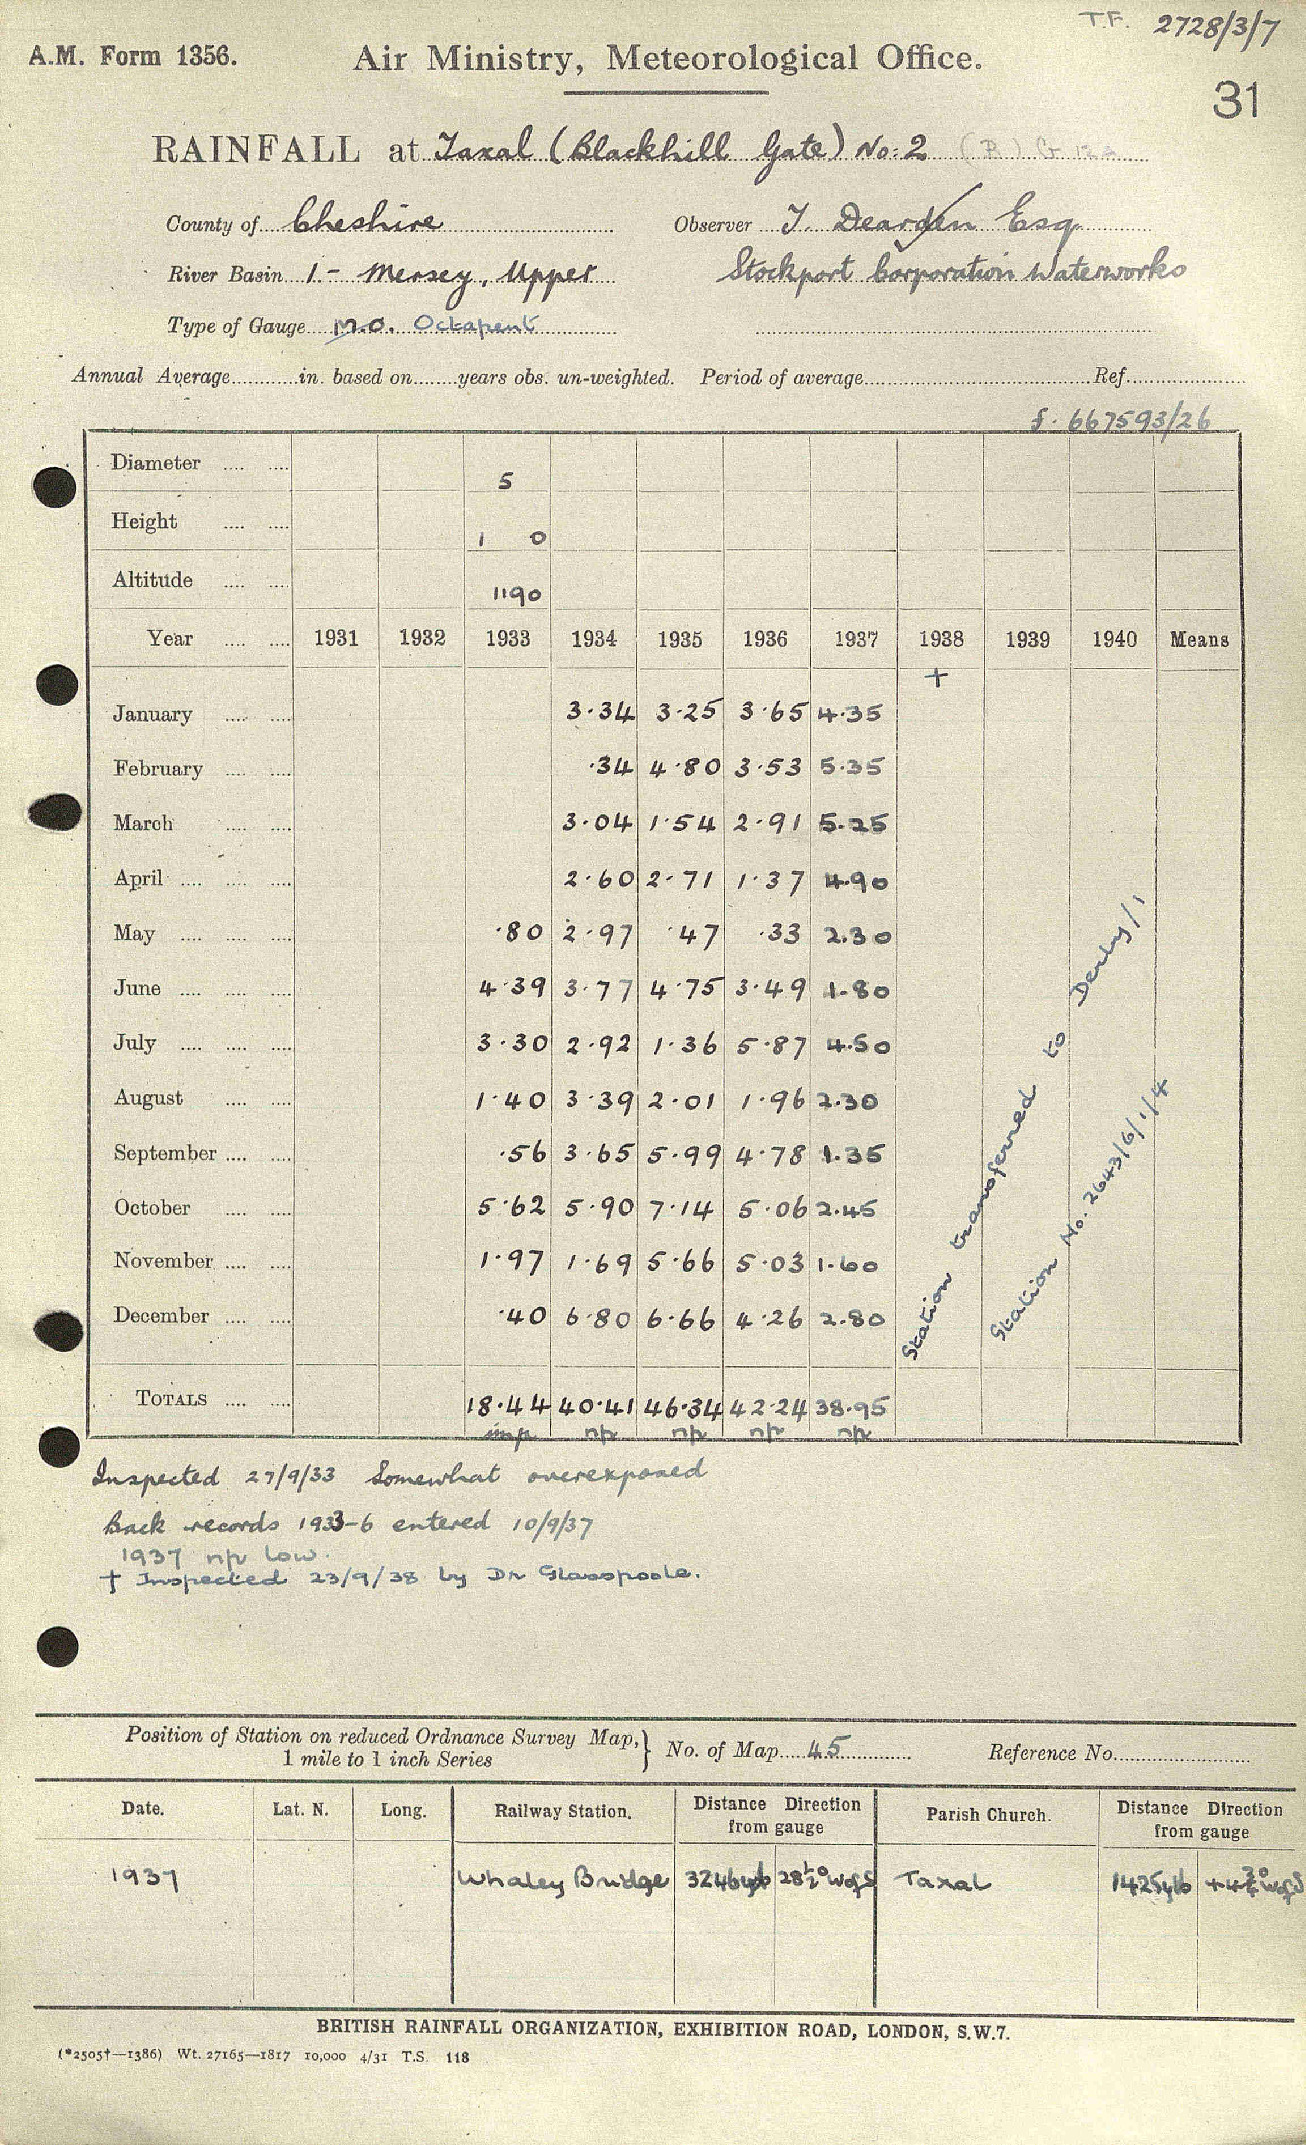 T.F. 2728/3/7
A.M. Form 1356. Air Ministry, Meteorological Office.
31
RAINFALL at Taxal (Blackhill Gate) No: 2
County of Cheshire Observer J. Dearden Esq
River Basin 1 - Mersey, Upper Stockport Corporation Waterworks
Type of Gauge M.O. Octapent
Annual Average in. based on years obs. un-weighted. Period of average Ref.
f. 667593/26
Diameter 5
Height 1 0
Altitude 1190
Year 1931 1932 1933 1934 1935 1936 1937 1938 1939 1940 Means
+
January 3.34 3.25 3.65 4.35
February .34 4.80 3.53 5.35
March 3.04 1.54 2.91 5.25
April 2.60 2.71 1.37 4.90
May .80 2.97 .47 .33 2.30
June 4.39 3.77 4.75 3.49 1.80
July 3.30 2.92 1.36 5.87 4.50
August 1.40 3.39 2.01 1.96 2.30
September .56 3.65 5.99 4.78 1.35
October 5.62 5.90 7.14 5.06 2.45
November 1.97 1.69 5.66 5.03 1.60
December .40 6.80 6.66 4.26 2.80
Station transferred to Derby/1
Station No. 2643/6/1/4
TOTALS 18.44 40.41 46.34 42.24 38.95
imp np np np np
Inspected 27/9/33 Somewhat overexposed
Back records 1933-6 entered 10/9/37
1937 np low.
† Inspected 23/9/38 by Dr Glasspoole.
Position of Station on reduced Ordnance Survey Map, } No. of Map 45 Reference No.
1 mile to 1 inch Series
Date. Lat. N. Long. Railway Station. Distance Direction from gauge Parish Church. Distance Direction from gauge
1937 Whaley Bridge 3246 yds 28½° W of S Taxal 1425 yds W of S
BRITISH RAINFALL ORGANIZATION, EXHIBITION ROAD, LONDON, S.W.7.
(*2505†—1386) Wt. 27165—1817 10,000 4/31 T.S. 118